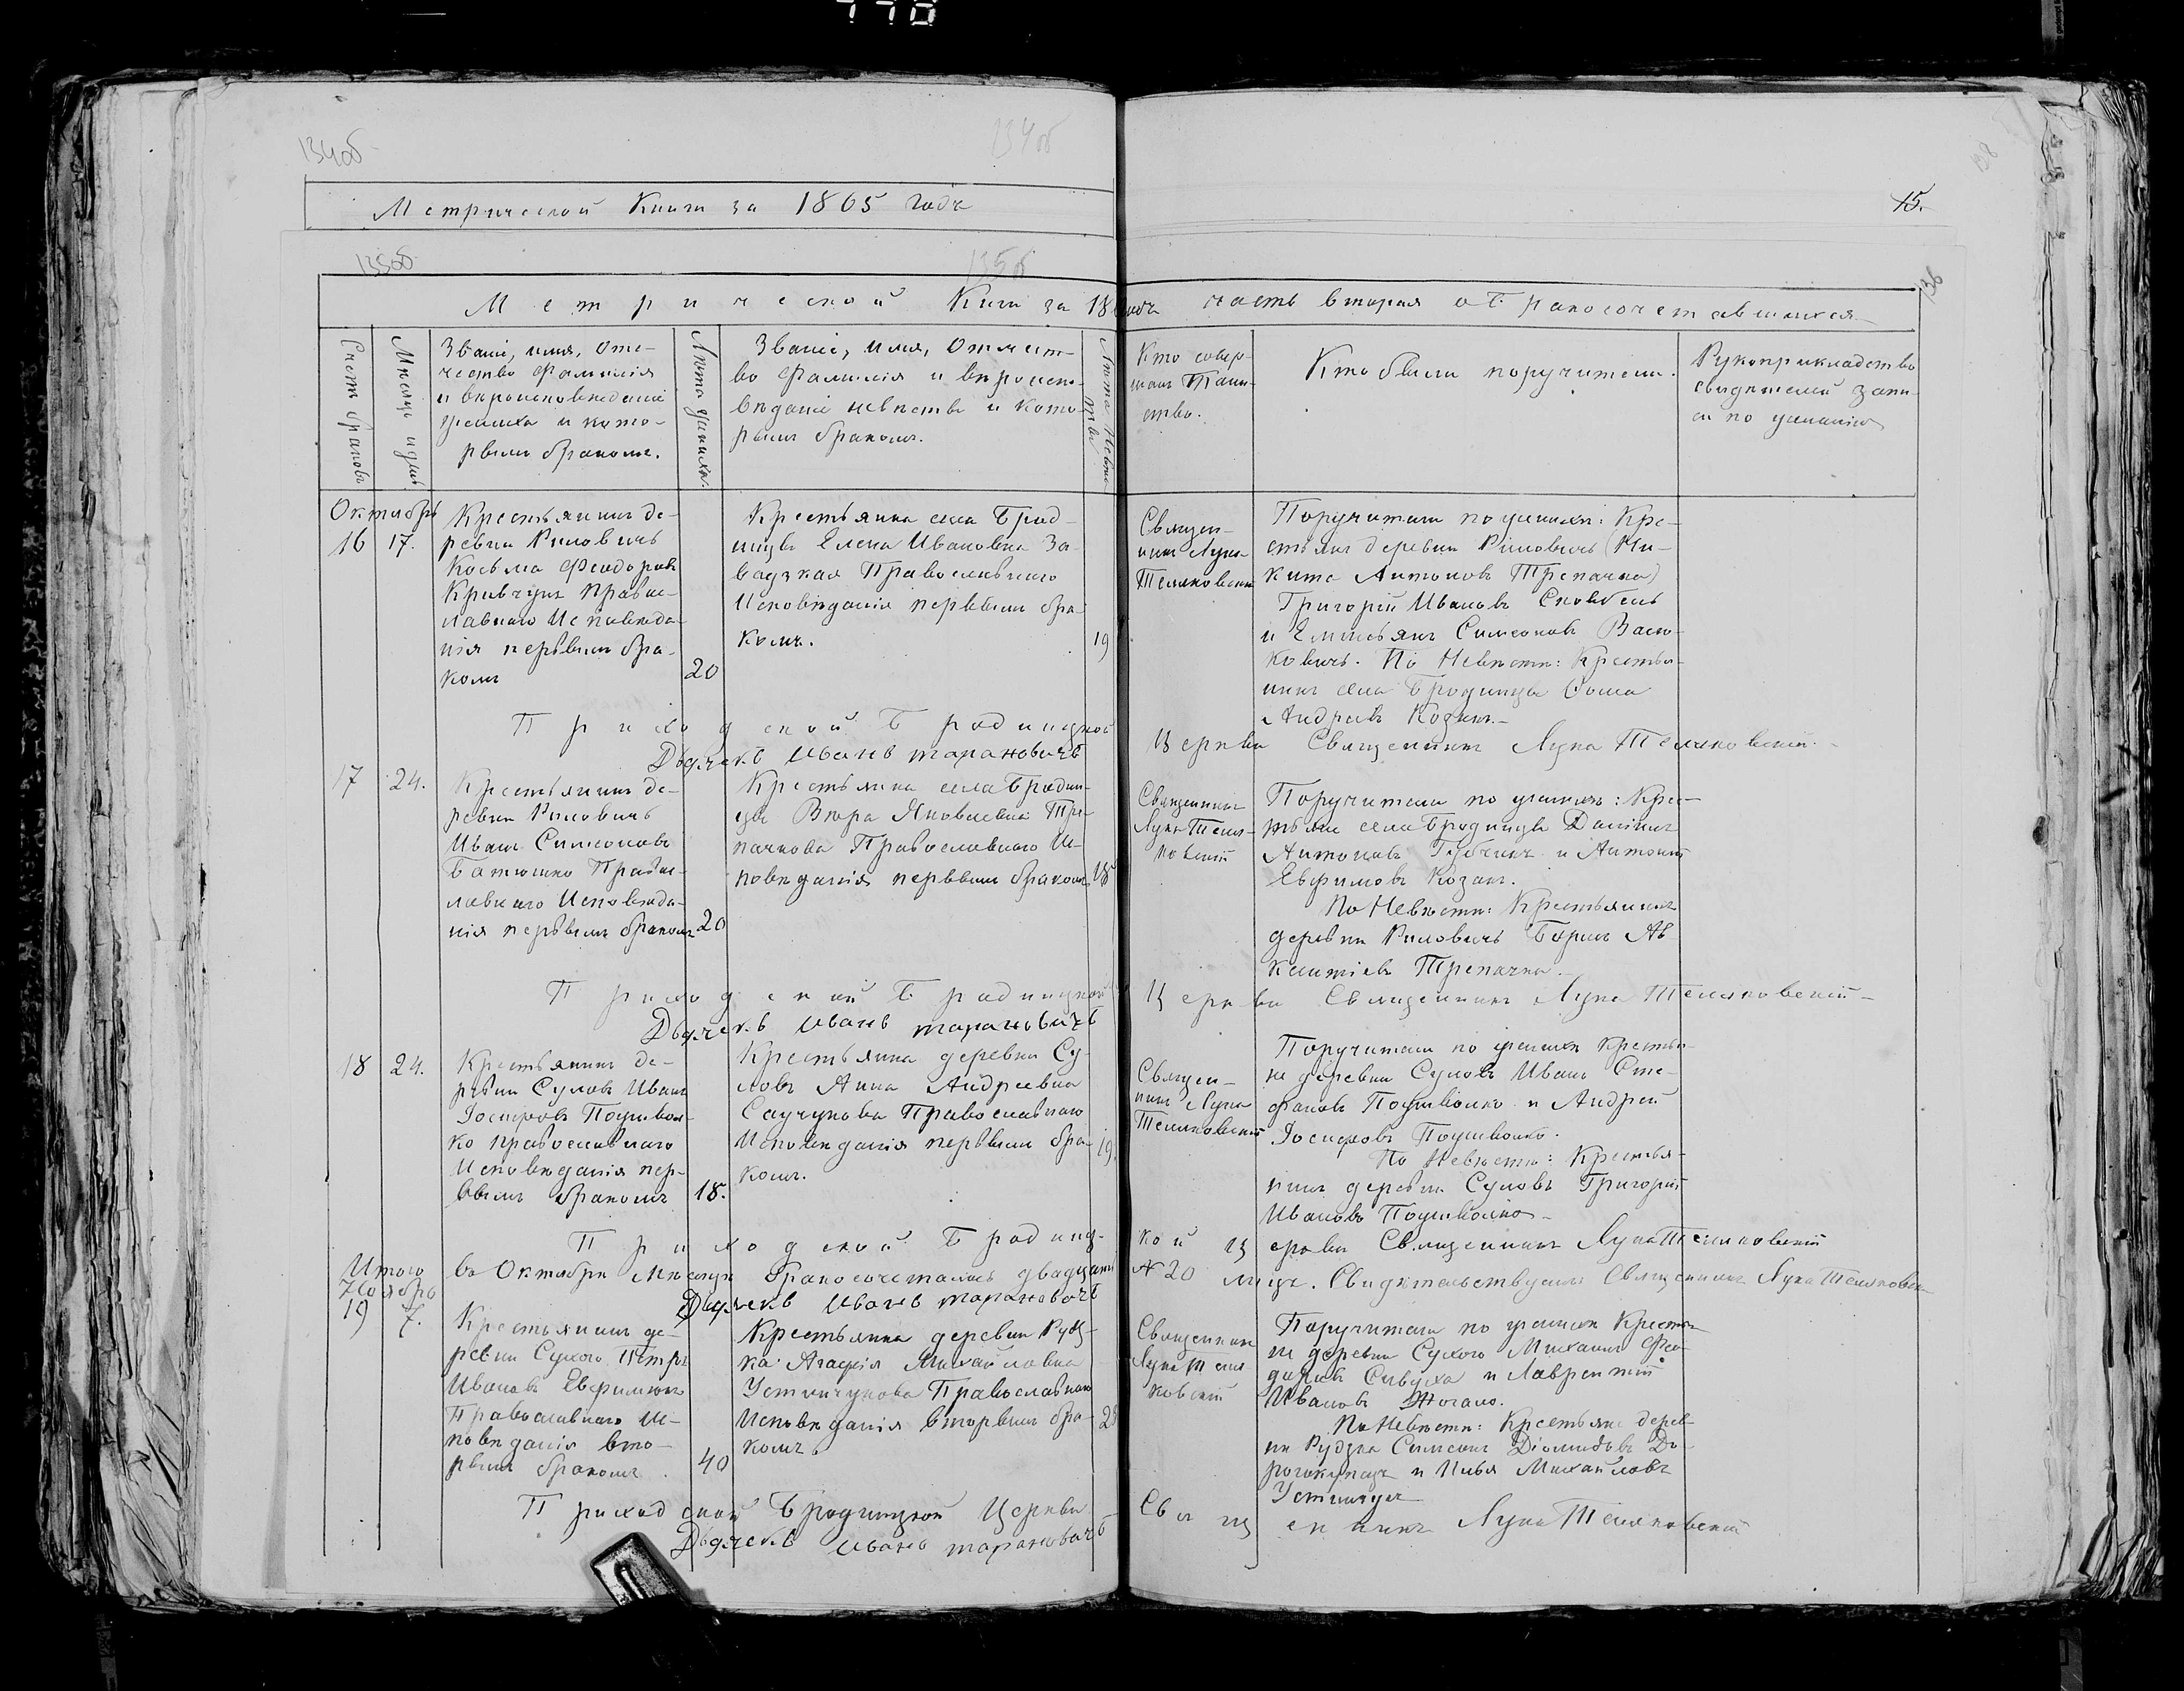 134об
134об
Метрической Книги за 1865 года
15.
135об
135б
136
Метрической Книги за 18 года часть вторая о Бракосочетавшихся
Счетъ браковъ
Мѣсяцъ и день
Званіе, имя, Оте-
чество Фамилія
и вѣроисповѣданіе
жениха и кото-
рымъ бракомъ.
Лѣта жениха.
Званіе, имя, Отчест-
во Фамилія и вѣроиспо-
вѣданіе невѣсты и кото-
рымъ бракомъ.
Лѣта Невѣсты
Кто совер-
шалъ Таин-
ство.
Кто были поручители.
Рукоприкладство
свидѣтелей запи-
си по желанію
Октябрь
16 17.
Крестьянинъ де-
ревни Риловичъ
Косьма Феодоровъ
Кравчукъ Право-
славнаго Исповѣда-
нія первымъ бра-
комъ
20
Крестьянка села Брод-
ницы Елена Ивановна За-
вадзкая Православнаго
Исповѣданія первымъ бра-
комъ.
19
Священ-
никъ Лука
Теляковскій
Поручители по женихѣ: Кре-
стьяне деревни Риловичъ (Ни-
кита Антоновъ Трепачка)
Григорій Ивановъ
и Емиліянъ Симеоновъ Васю-
ковичъ. По Невѣстѣ: Крестья-
нинъ села Бродницы Ѳома
Андреевъ Козакъ.
Приходской Бродницкой Церкви Священникъ Лука Теляковскій.
Дьячекъ Иванъ тарановичъ
17 24.
Крестьянинъ де-
ревни Риловичъ
Иванъ Симеоновъ
Батюшко Право-
славнаго Исповѣда-
нія первымъ бракомъ
20
Крестьянка села Бродни-
цы Вѣра Яковлевна Тре-
пачкова Православнаго Ис-
повѣданія первымъ бракомъ
18
Священникъ
Лука Теля-
ковскій
Поручители по женихѣ: Крес-
тьяне села Бродницы Даніилъ
Антоновъ и Антоній
Евфимовъ Козакъ.
По Невѣстѣ: Крестьянинъ
деревни Риловичъ Борисъ Ав
ксентіевъ Трепачка.
Приходской Бродницкой Церкви Священникъ Лука Теляковскій
Дьячекъ Иванъ тарановичъ
18 24.
Крестьянинъ де-
ревни Суловъ Иванъ
Іосифовъ Поушвой-
ко православнаго
Исповѣданія пер-
вымъ бракомъ
18.
Крестьянка деревни Су-
ловъ Анна Андреевна
Саучукова Православнаго
Исповѣданія первымъ бра-
комъ.
19.
Священ-
никъ Лука
Теляковскій
Поручители по женихѣ Крестья-
не деревни Суловъ Иванъ Сте-
фановъ Поушвойко и Андрей
Іосифовъ Поушвойко.
По Невѣстѣ: Крестья-
нинъ деревни Суловъ Григорій
Ивановъ Поушвойко
Приходской Бродницкой Церкви Священникъ Лука Теляковскій
Итого въ Октябрѣ Мѣсяцѣ бракосочеталось двадцать № 20 лицъ. Свидѣтельствуемъ Священникъ Лука Теляковскій
Дьячекъ Иванъ тарановичъ
Ноябрь
19 7.
Крестьянинъ де-
ревни Сухого Петръ
Ивановъ Евфимюкъ
Православнаго Ис-
повѣданія вто-
рымъ бракомъ.
40
Крестьянка деревни Рудз-
ка Агафія Михайловна
Устинчукова Православнаго
Исповѣданія вторымъ бра-
комъ.
Священникъ
Лука Теля-
ковскій
Поручители по женихѣ Крестья-
не деревни Сухого Михаилъ Фео-
доровъ Сивуха и Лаврентій
Ивановъ
По Невѣстѣ: Крестьяне дерев-
ни Рудзка Симеонъ Діомидовъ До-
рогокупецъ и Илья Михайловъ
Устинчукъ
Приходской Бродницкой Церкви Священникъ Лука Теляковскій
Дьячекъ Иванъ тарановичъ